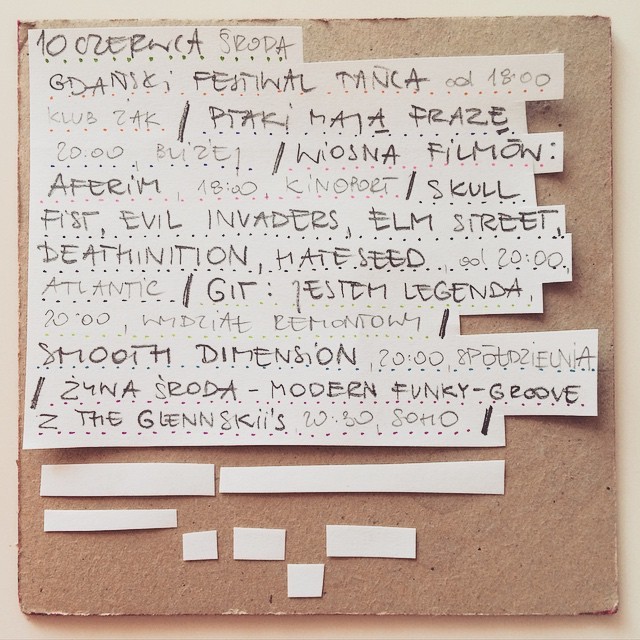 10 CZERWCA ŚRODA
GDAŃSKI FESTIWAL TAŃCA od 18:00
KLUB ŻAK / PTAKI MAJĄ FRAZĘ,
20:00, BLIŻEJ / WIOSNA FILMÓW:
AFERIM, 18:00, KINOPORT / SKULL
FIST, EVIL INVADERS, ELM STREET,
DEATHINITION, HATESEED, od 20:00,
ATLANTIC / GIT: JESTEM LEGENDA,
20:00, WYDZIAŁ REMONTOWY /
SMOOTH DIMENSION, 20:00, SPÓŁDZIELNIA
/ ŻYWA ŚRODA - MODERN FUNKY-GROOVE
Z THE GLENNSKII'S 20:30, SOHO /